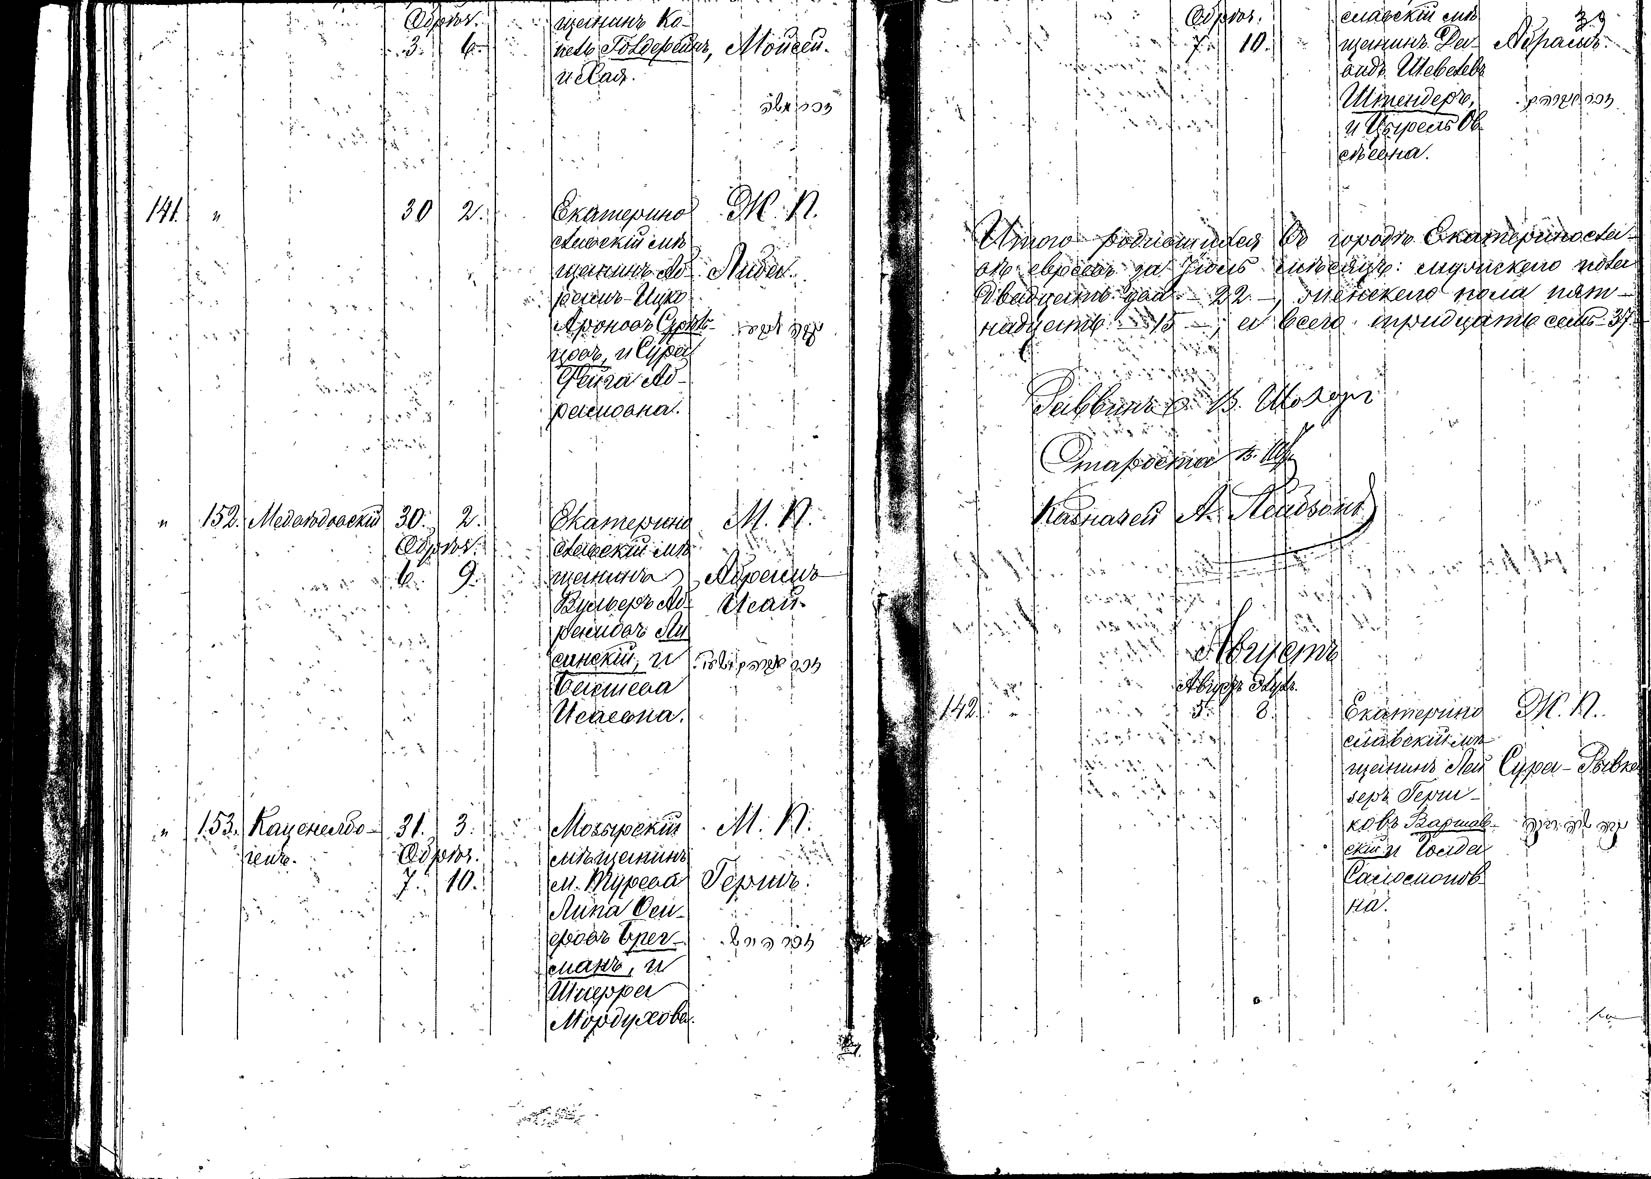 Обрѣз.
3. 6.
щанинъ Ко-
пель Гольдфейнъ,
и Хая.
Мойсей.
זכר משה
141. " 30 2.
Екатерино
славскій мѣ
щанинъ Аб-
рамъ-Ицко
Ароновъ
цовъ, и Сура
Фейга Аб-
рамовна.
Ж. П.
Либа.
" 152. Медвѣдовскій 30. 2.
Обрѣз.
6. 9.
Екатерино
славскій мѣ
щанинъ
Вульфъ Аб-
рамовъ Ли
санскій, и
Басшева
Исаевна.
М. П.
Абрамъ
Исай.
" 153. Каценельбо-
генъ.
31. 3.
Обрѣз.
7. 10.
Мозырскій
мѣщанинъ
м. Турова
Липа Осиповъ
Брег-
манъ, и
Шифра
Мордухова.
М. П.
Гершъ.
זכר הירש
39
Обрѣз.
7. 10.
славскій мѣ
щанинъ Да-
видъ Шевелевъ
Штендеръ,
и Цырель Ов-
сѣевна.
Абрамъ.
זכר אברהם
Итого родившихся въ городѣ Екатеринославѣ
евреевъ за Іюль мѣсяцъ: мужскаго пола
двадцать два – 22 –, женскаго пола пят-
надцать – 15 –, а всего тридцать семь – 37
Раввинъ В. Шохоръ
Староста
Казначей А. Лейбзонъ
Августъ
Августъ Элулъ.
142. 5. 8.
Екатерино
славскій мѣ
щанинъ Лей
зеръ Герш-
ковъ Варшав-
скій и Голда
Саломонов-
на.
Ж. П.
Сура-Рывка